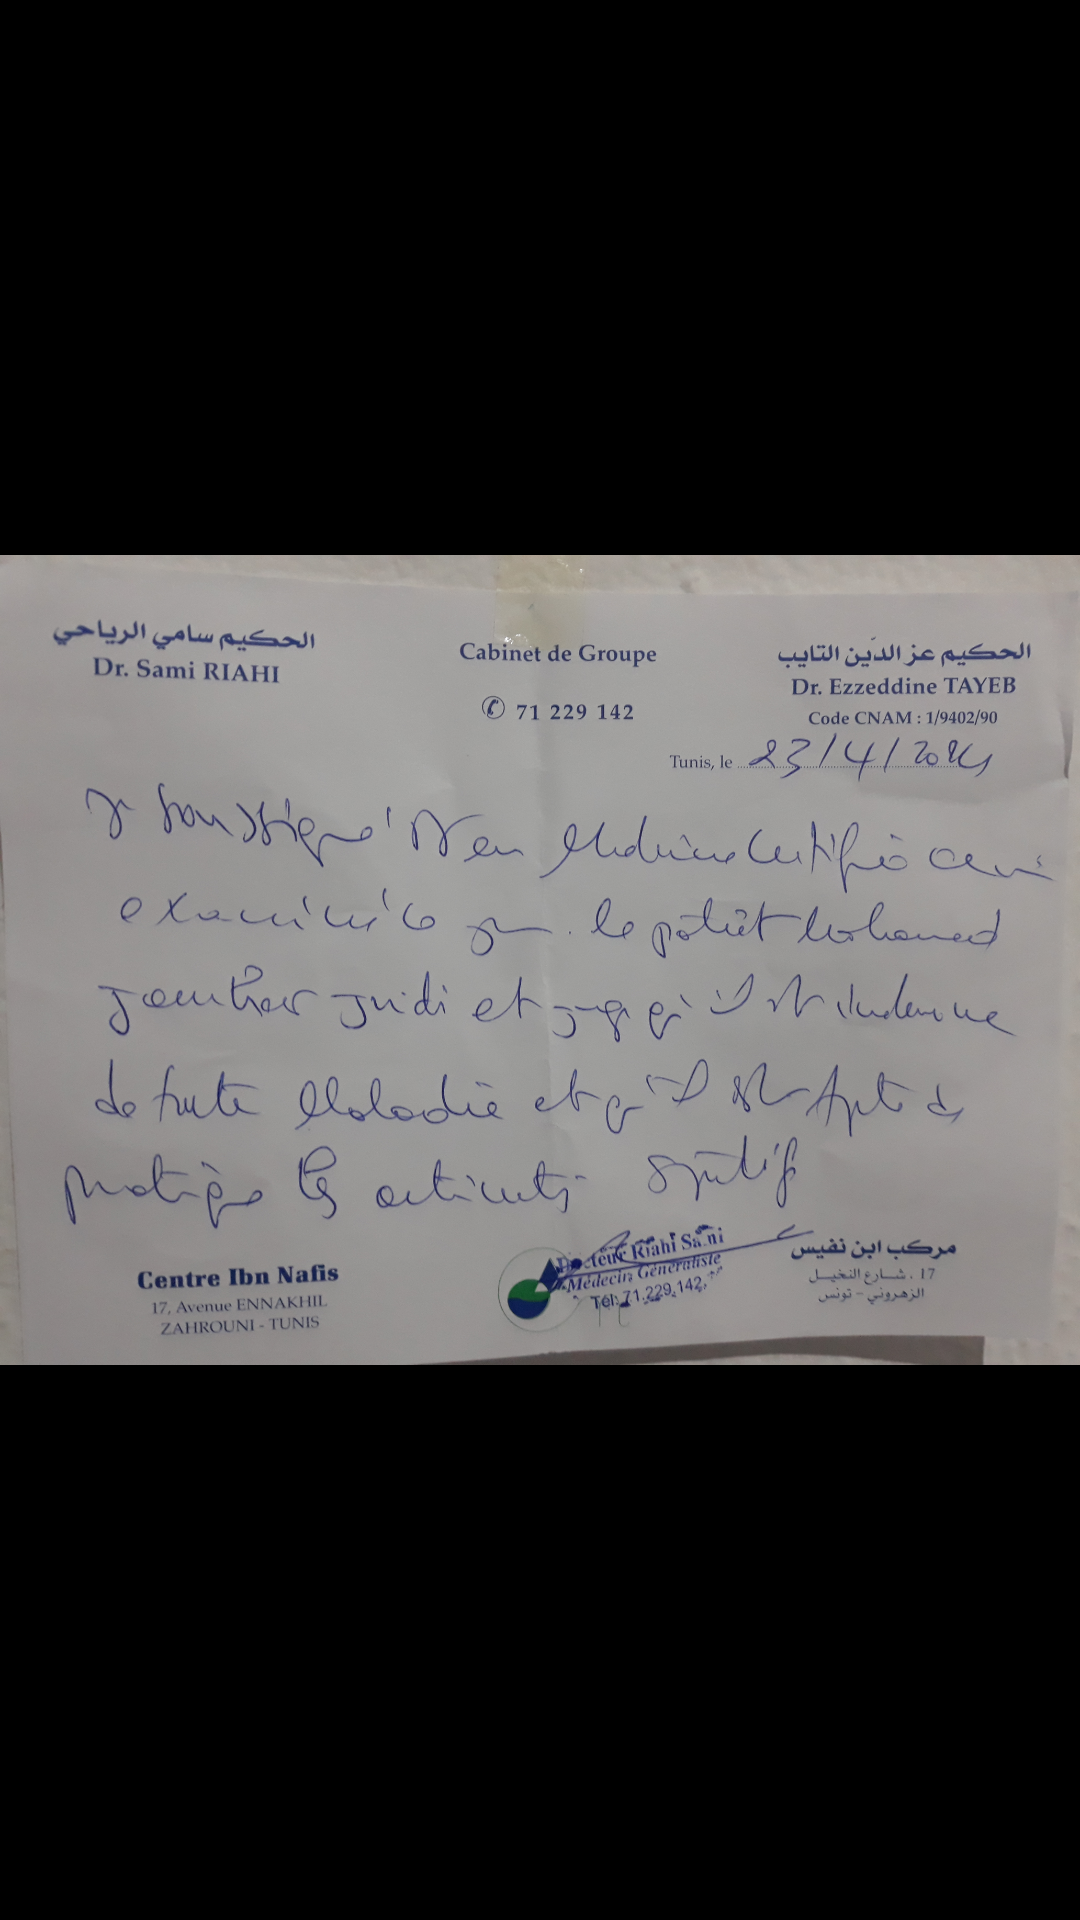 الحكيم سامي الرياحي
Dr. Sami RIAHI
Cabinet de Groupe
71 229 142
الحكيم عز الدّين التايب
Dr. Ezzeddine TAYEB
Code CNAM : 1/9402/90
Tunis, le 23/4/2024
Je soussigné Dr en Médecine Certifie avoir
examiné ce jour le patient Mohamed
et juge qu'il est indemne
de toute Maladie et qu'il est Apte à
pratiquer les activités sportifs
Centre Ibn Nafis
17, Avenue ENNAKHIL
ZAHROUNI - TUNIS
Docteur Riahi Sami
Médecin Généraliste
Tél: 71.229.142
مركب ابن نفيس
17 ، شارع النخيل
الزهروني - تونس